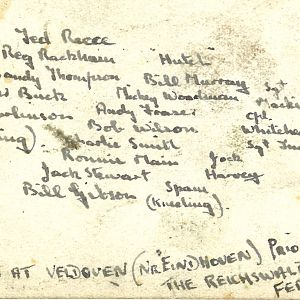 Ted Reece
Reg Rackham "Hutch"
andy Thompson Bill Murray Sgt
Buck Mickey Woodman Mackie
ohnson Andy Fraser Cpl.
ing) Bob Wilson Whiteha
Charlie Smith Sgt
Ronnie Main Jock
Jack Stewart Harvey
Bill Gibson Spam
(Kneeling).
AT VELDOVEN (NR EINDHOVEN) PRIO
THE REICHSWAL
FE